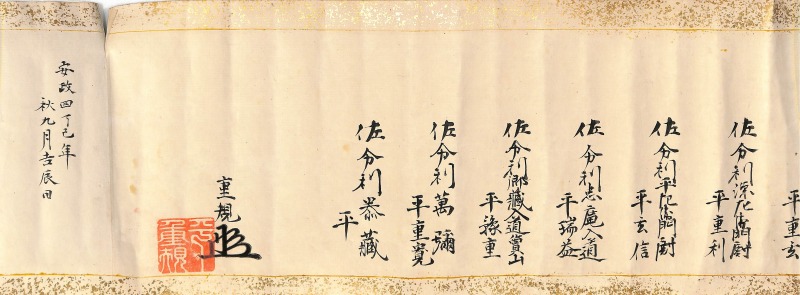 平重玄
佐分利源左衛門尉
平重利
佐分利平左衛門尉
平玄信
佐分利忠庵入道
平瑞益
佐分利郷藏入道賞山
平豫重
佐分利萬彌
平重寛
佐分利恭藏
平
重規
安政四丁巳年
秋九月吉辰日